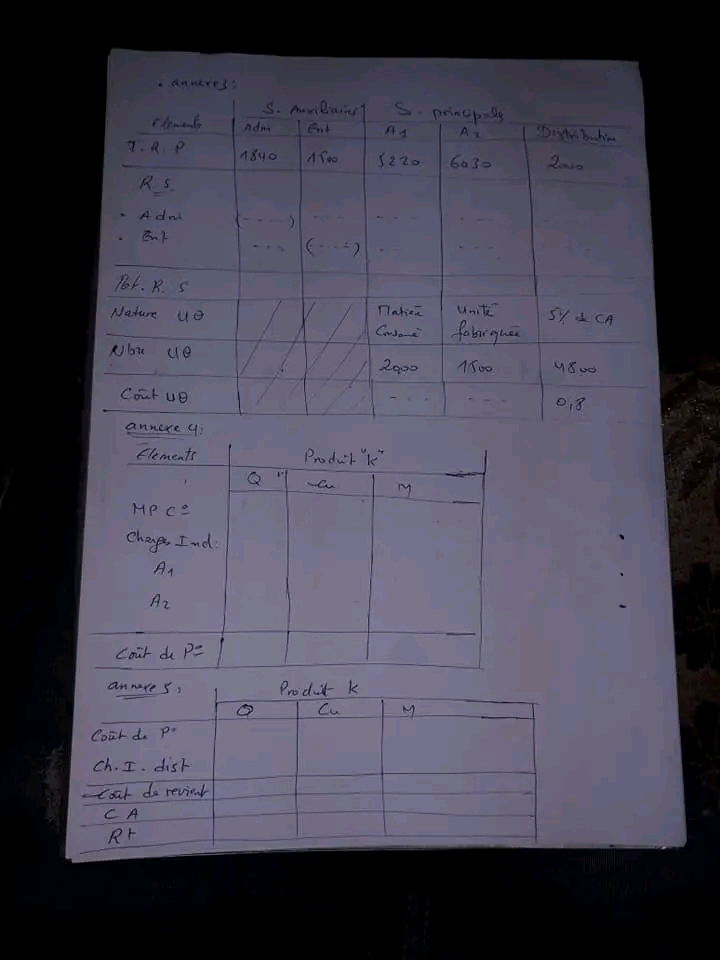 . annexe 3 :
S. Auxiliaires S. principale
Elements Adm Ent A1 A2 Distribution
T. R. P 1840 1500 5220 6030 2000
R. S.
. Adm (- - - -) - - - - - - - - - - - -
. Ent - - - (- - - -) - - - - - - - - -
Tot. R. S
Nature UO Matière Unité 5% de CA
Consomé fabriquée
Nbre UO 2000 1500 4800
Coût UO - - - - - - 0,8
annexe 4 :
Elements Produit "K"
Q Cu M
MP C°
Charges Ind :
A1
A2
Coût de P°
annexe 5 : Produit K
Q Cu M
Coût de P°
Ch. I. dist
Coût de revient
C A
Rt